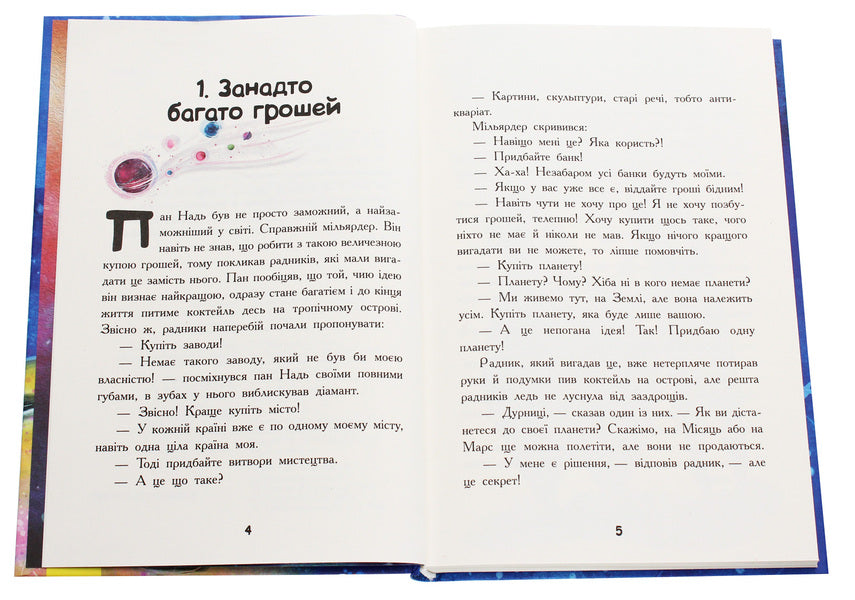 1. Занадто
багато грошей
Пан Надь був не просто заможний, а найза-
можніший у світі. Справжній мільярдер. Він
навіть не знав, що робити з такою величезною
купою грошей, тому покликав радників, які мали вига-
дати це замість нього. Пан пообіцяв, що той, чию ідею
він визнає найкращою, одразу стане багатієм і до кінця
життя питиме коктейль десь на тропічному острові.
Звісно ж, радники наперебій почали пропонувати:
— Купіть заводи!
— Немає такого заводу, який не був би моєю
власністю! — посміхнувся пан Надь своїми повними
губами, в зубах у нього виблискував діамант.
— Звісно! Краще купіть місто!
— У кожній країні вже є по одному моєму місту,
навіть одна ціла країна моя.
— Тоді придбайте витвори мистецтва.
— А це що таке?
4
— Картини, скульптури, старі речі, тобто анти-
кваріат.
Мільярдер скривився:
— Навіщо мені це? Яка користь?!
— Придбайте банк!
— Ха-ха! Незабаром усі банки будуть моїми.
— Якщо у вас уже все є, віддайте гроші бідним!
— Навіть чути не хочу про це! Я не хочу позбу-
тися грошей, телепню! Хочу купити щось таке, чого
ніхто не має й ніколи не мав. Якщо нічого кращого
вигадати ви не можете, то ліпше помовчіть.
— Купіть планету!
— Планету? Чому? Хіба ні в кого немає планети?
— Ми живемо тут, на Землі, але вона належить
усім. Купіть планету, яка буде лише вашою.
— А це непогана ідея! Так! Придбаю одну
планету!
Радник, який вигадав це, вже нетерпляче потирав
руки й подумки пив коктейль на острові, але решта
радників ледь не луснула від заздрощів.
— Дурниці, — сказав один із них. — Як ви діста-
нетеся до своєї планети? Скажімо, на Місяць або на
Марс ще можна полетіти, але вони не продаються.
— У мене є рішення, — відповів радник, — але
це секрет!
5